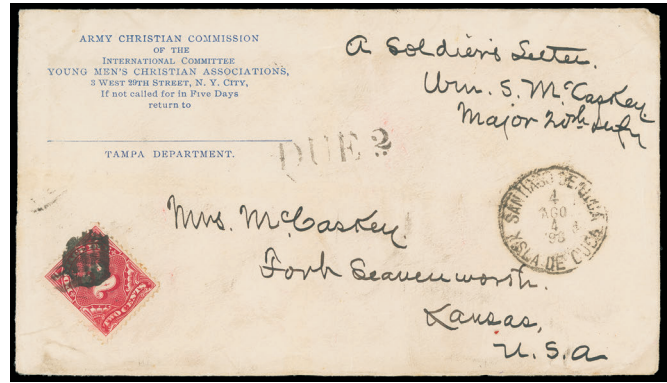 ARMY CHRISTIAN COMMISSION
OF THE
INTERNATIONAL COMMITTEE
YOUNG MEN'S CHRISTIAN ASSOCIATIONS,
3 WEST 29TH STREET, N. Y. CITY,
If not called for in Five Days
return to
TAMPA DEPARTMENT.
A Soldier's Letter.
Wm. S. McCaskey
Major 20th Infy
DUE 2
SANTIAGO DE CUBA
4
AGO
4
98
ISLA DE CUBA
Mrs. McCaskey.
Fort Leavenworth.
Kansas,
U. S. A
2
TWO CENTS